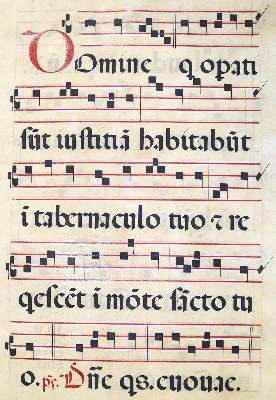 Domine q opati
sūt iustitiā habitabūt
ī tabernaculo tuo ⁊ re
q̄escēt ī mōte sācto tu
o. ps. Dn̄e qs. euouae.